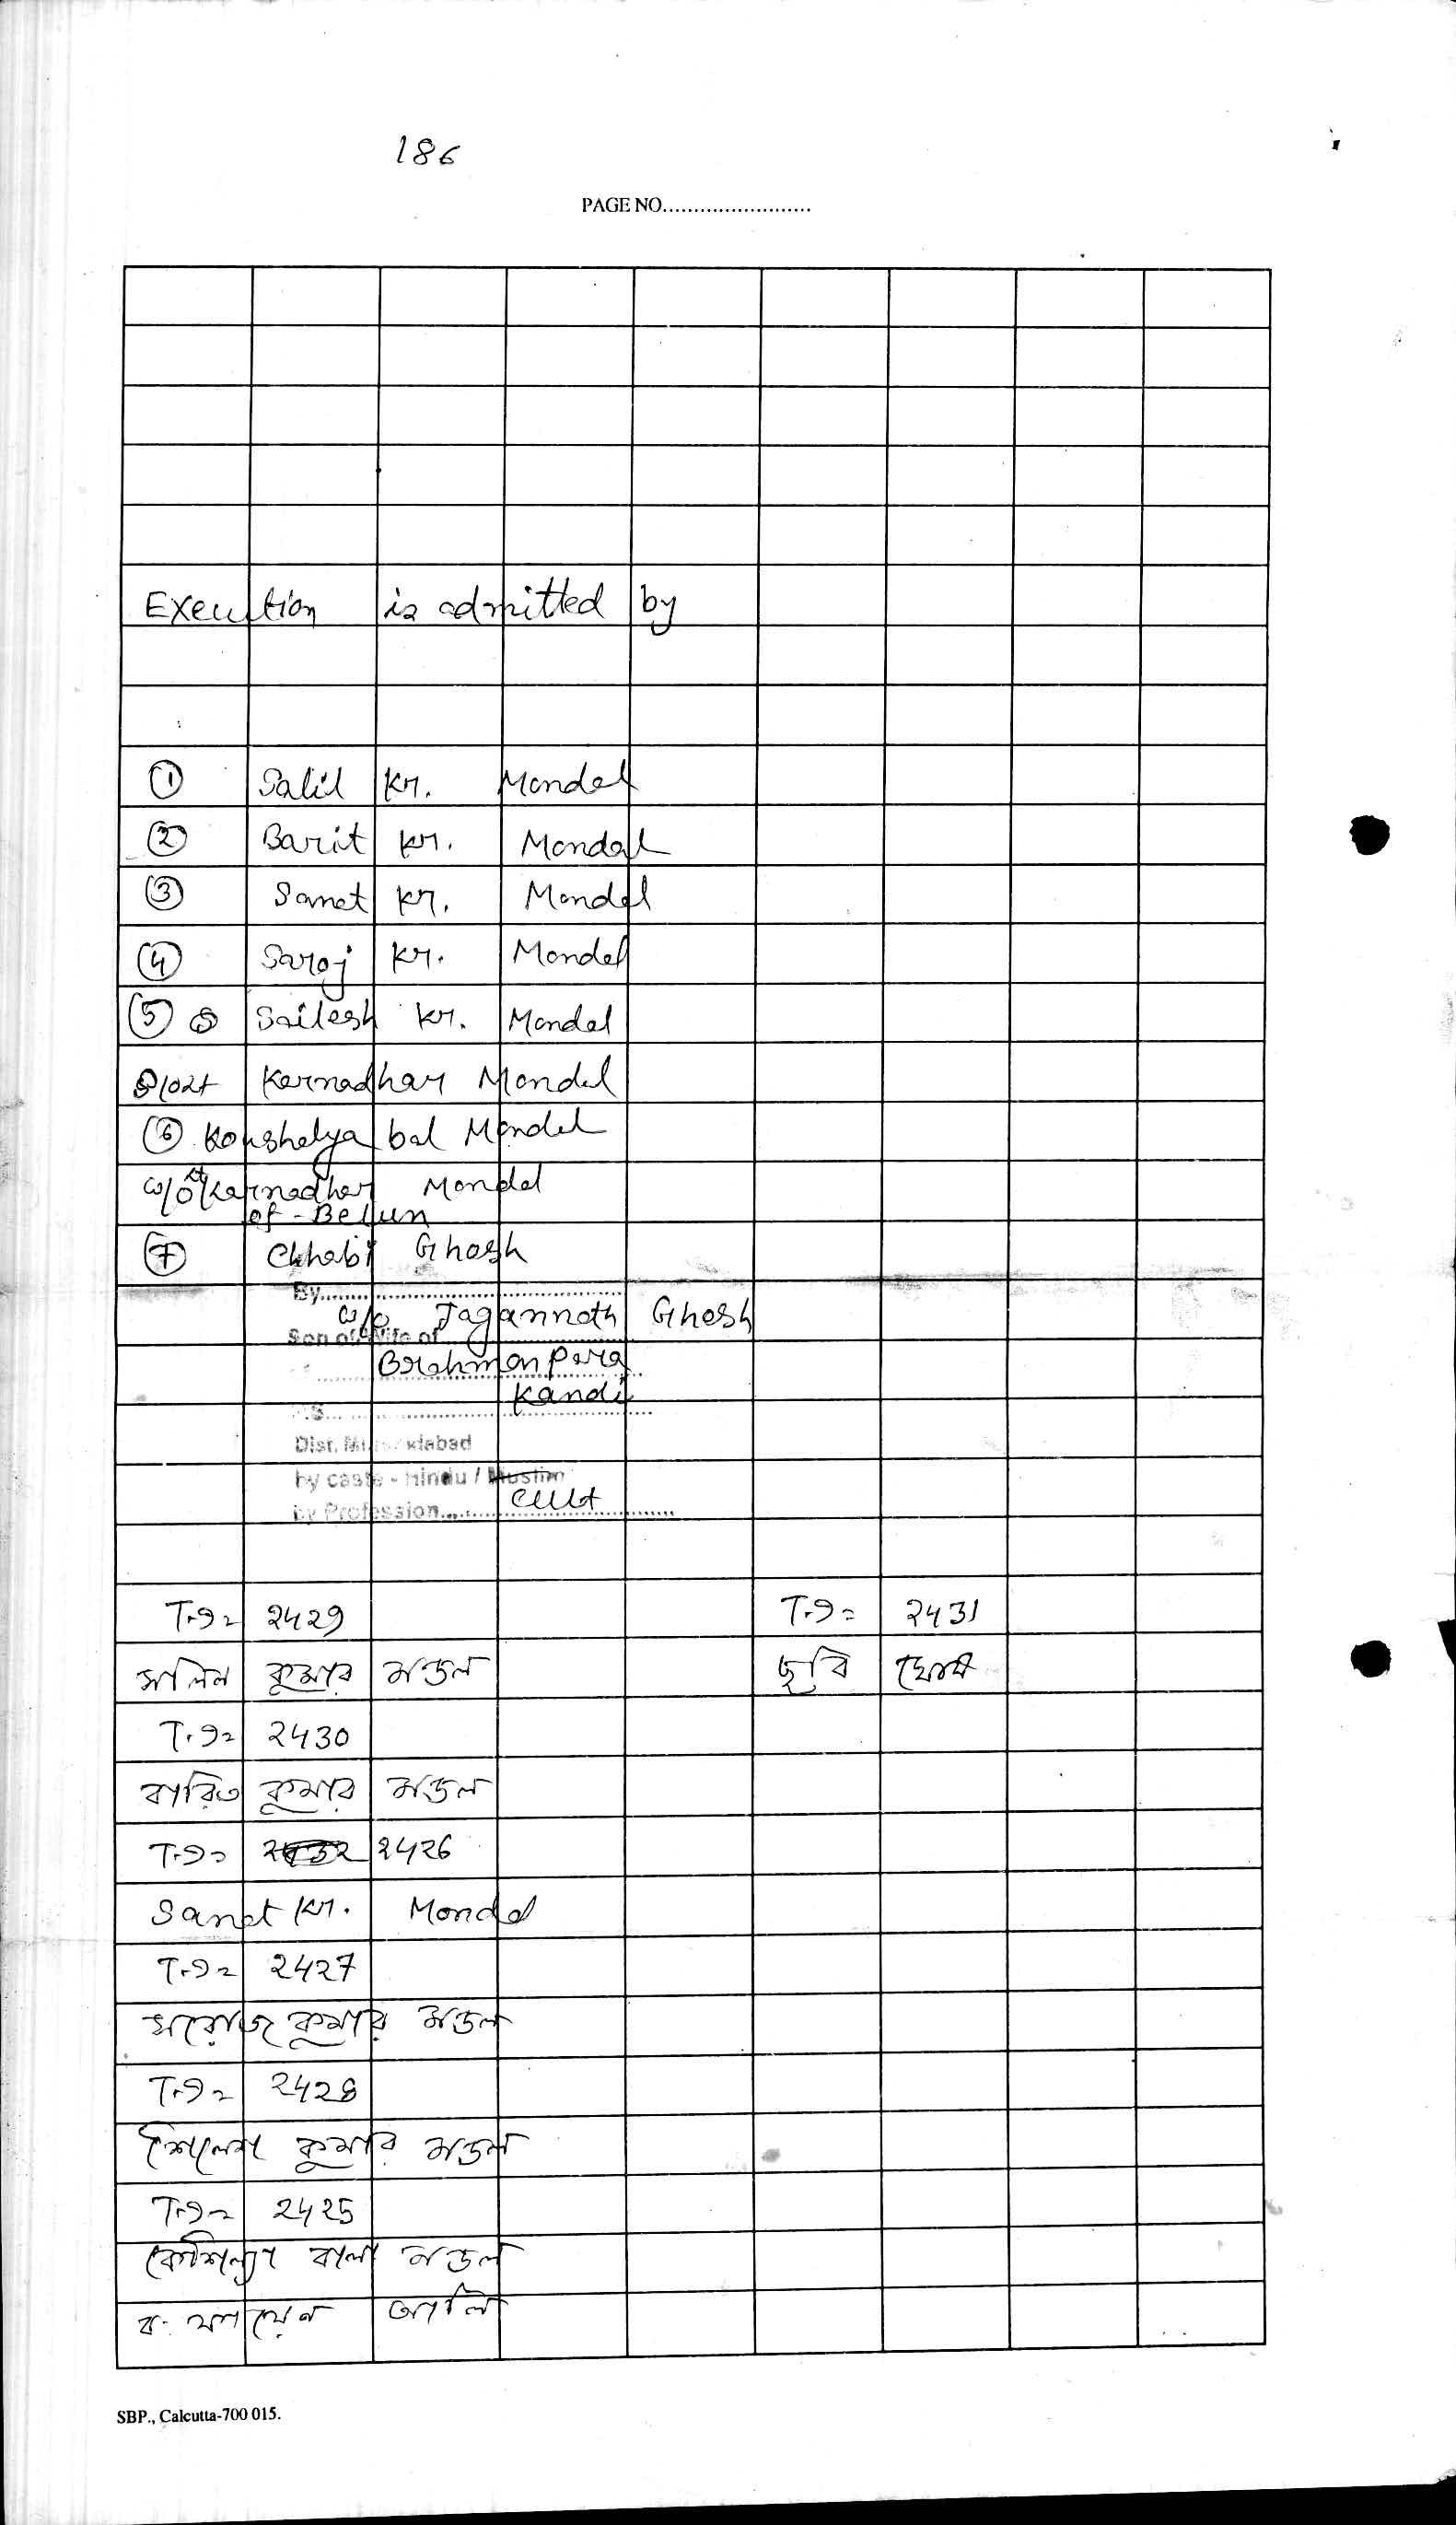 186
PAGE NO........................
Execution is admitted by
① Salil Kr. Mondal
② Barit Kr. Mondal
③ Sanat Kr. Mondal
④ Saroj Kr. Mondal
⑤ Sailesh Kr. Mondal
Karnadhar Mondal
⑥ Koushalya bal Mondal
w/o Lt Karnadhar Mondal
of - Belun
⑦ Chhabi Ghosh
By........................
w/o Jagannath Ghosh
Son of/Wife of
Brahmanpara
Kandi
P.S........................
Dist. Murshidabad
by caste - Hindu / Muslim
by Profession.... Cult
2429 2431
সলিল কুমার মণ্ডল ছবি ঘোষ
2430
বারিত কুমার মণ্ডল
2426
Sanat Kr. Mondal
2427
সরোজ কুমার মণ্ডল
2428
শৈলেশ কুমার মণ্ডল
2425
কৌশল্যা বালা মণ্ডল
ব:
SBP., Calcutta-700 015.